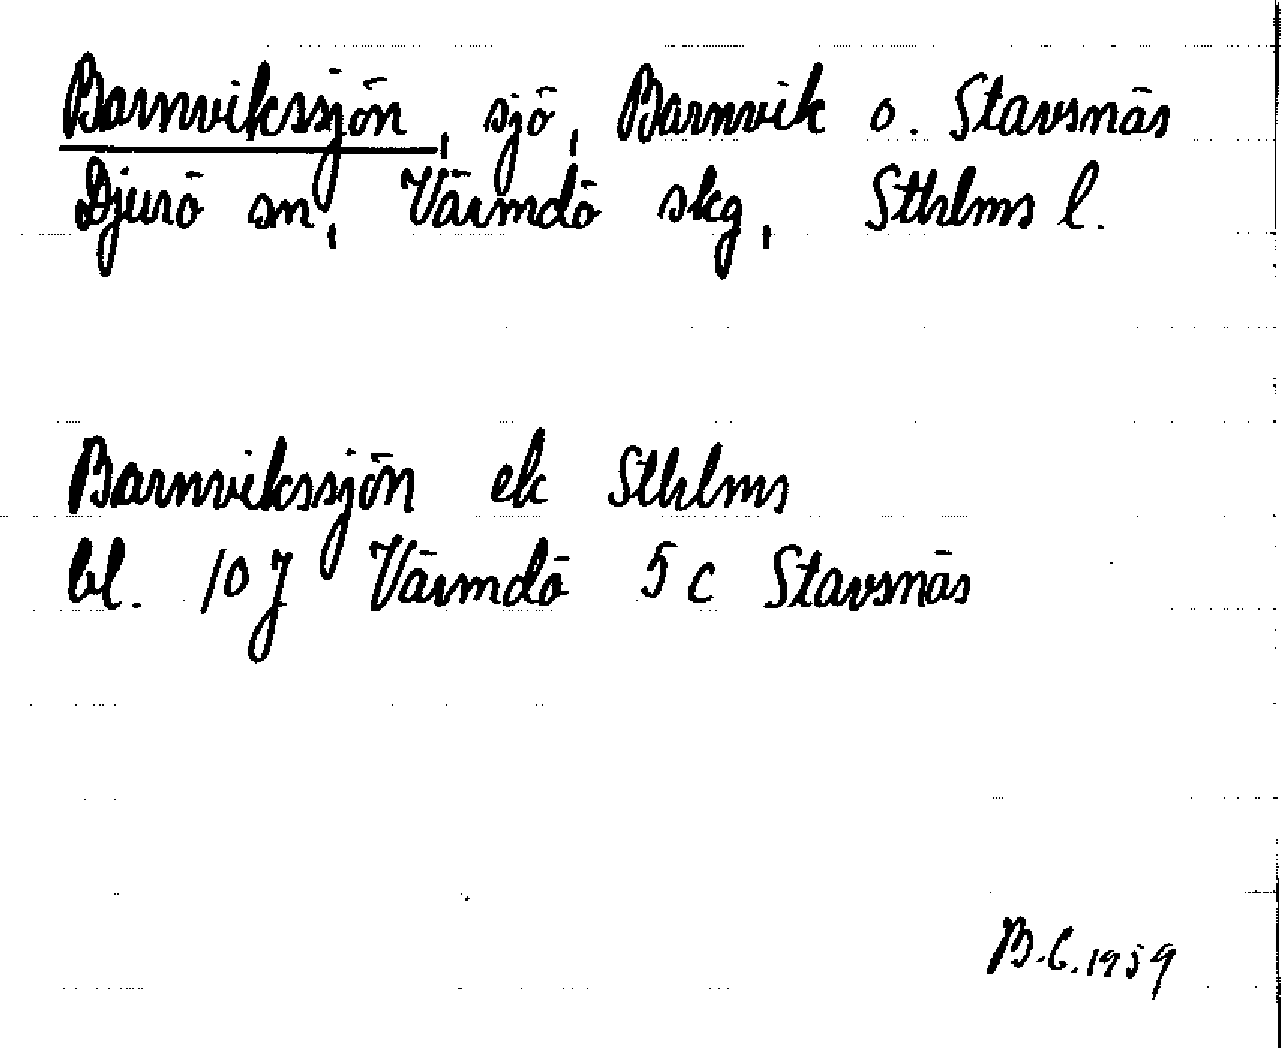 Barnvikssjön, sjö, Barnvik o. Stavsnäs
Djurö sn, Värmdö skg, Sthlms l.
Barnvikssjön ek Sthlms
bl. 10J Värmdö 5 c Stavsnäs
B.C.1959